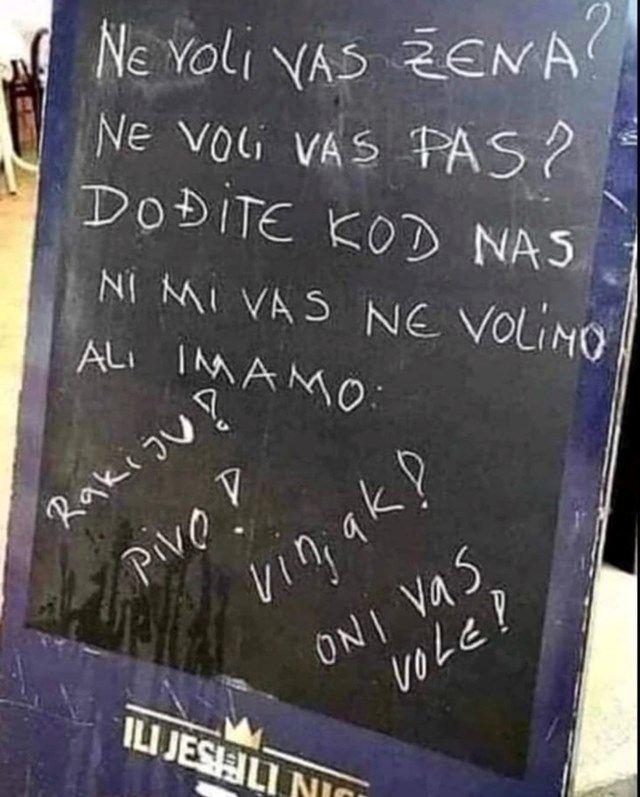 NE VOLI VAS ŽENA?
NE VOLI VAS PAS?
DOĐITE KOD NAS
NI MI VAS NE VOLIMO
ALI IMAMO:
Rakiju!
Pivo!
Vinjak!
ONI VAS
VOLE!
ILI JESI ILI